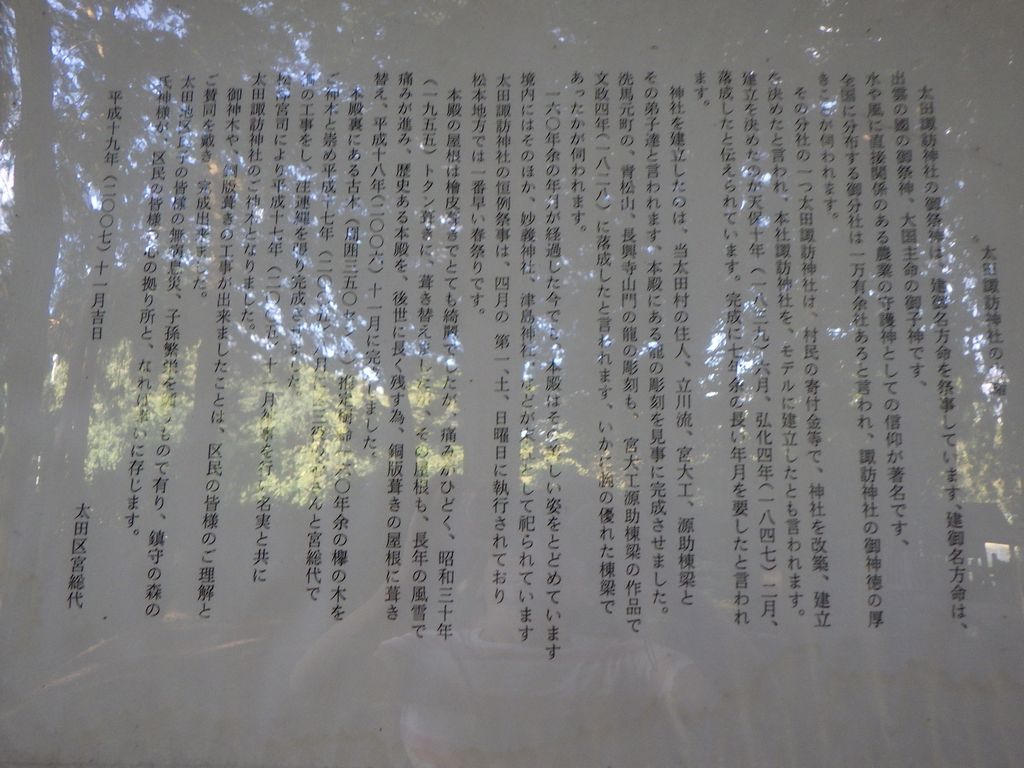 太田諏訪神社の
太田諏訪神社の御祭神は、建御名方命を祭事しています、建御名方命は、
出雲の國の御祭神、大国主命の御子神です。
水や風に直接関係のある農業の守護神としての信仰が著名です、
全国に分布する御分社は一万有余社あると言われ、諏訪神社の御神徳の厚
きことが伺われます。
その分社の一つ太田諏訪神社は、村民の寄付金等で、神社を改築、建立
を決めたと言われ、本社諏訪神社を、モデルに建立したとも言われます。
建立を決めたのが天保十年（一八三九）六月、弘化四年（一八四七）二月、
落成したと伝えられています。完成に七年余の長い年月を要したと言われ
ます。
神社を建立したのは、当太田村の住人、立川流、宮大工、源助棟梁と
その弟子達と言われます、本殿にある龍の彫刻を見事に完成させました。
洗馬元町の、青松山、長興寺山門の龍の彫刻も、宮大工源助棟梁の作品で
文政四年（一八二八）に落成したと言われます、いかに腕の優れた棟梁で
あったかが伺われます。
一六〇年余の年月が経過した今でも、本殿はその美しい姿をとどめています
境内にはそのほか、妙義神社、津島神社、ほどが末社として祀られています
太田諏訪神社の恒例祭事は、四月の 第一、土、日曜日に執行されており
松本地方では一番早い春祭りです。
本殿の屋根は檜皮葺きでとても綺麗でしたが、痛みがひどく、昭和三十年
（一九五五）トタン葺きに、葺き替えました、その屋根も、長年の風雪で
痛みが進み、歴史ある本殿を、後世に長く残す為、銅版葺きの屋根に葺き
替え、平成十八年（二〇〇六）十一月に完成しました。
本殿裏にある古木（周囲三五〇センチ）推定樹齢一六〇年余の欅の木を
ご神木と崇め平成十七年（二〇〇五）月に 三役 さんと宮総代で
の工事をし、注連縄を張り完成させました。
松 宮司により平成十七年（二〇〇五）十一月 事を行い名実と共に
太田諏訪神社のご神木となりました。
御神木や、銅版葺きの工事が出来ましたことは、区民の皆様のご理解と
ご賛同を戴き、完成出来ました。
太田地区 の皆様の無病息災、子孫繁栄を もので有り、鎮守の森の
氏神様が、区民の皆様の心の拠り所と、なれば幸いに存じます。
平成十九年（二〇〇七）十一月吉日
太田区宮総代